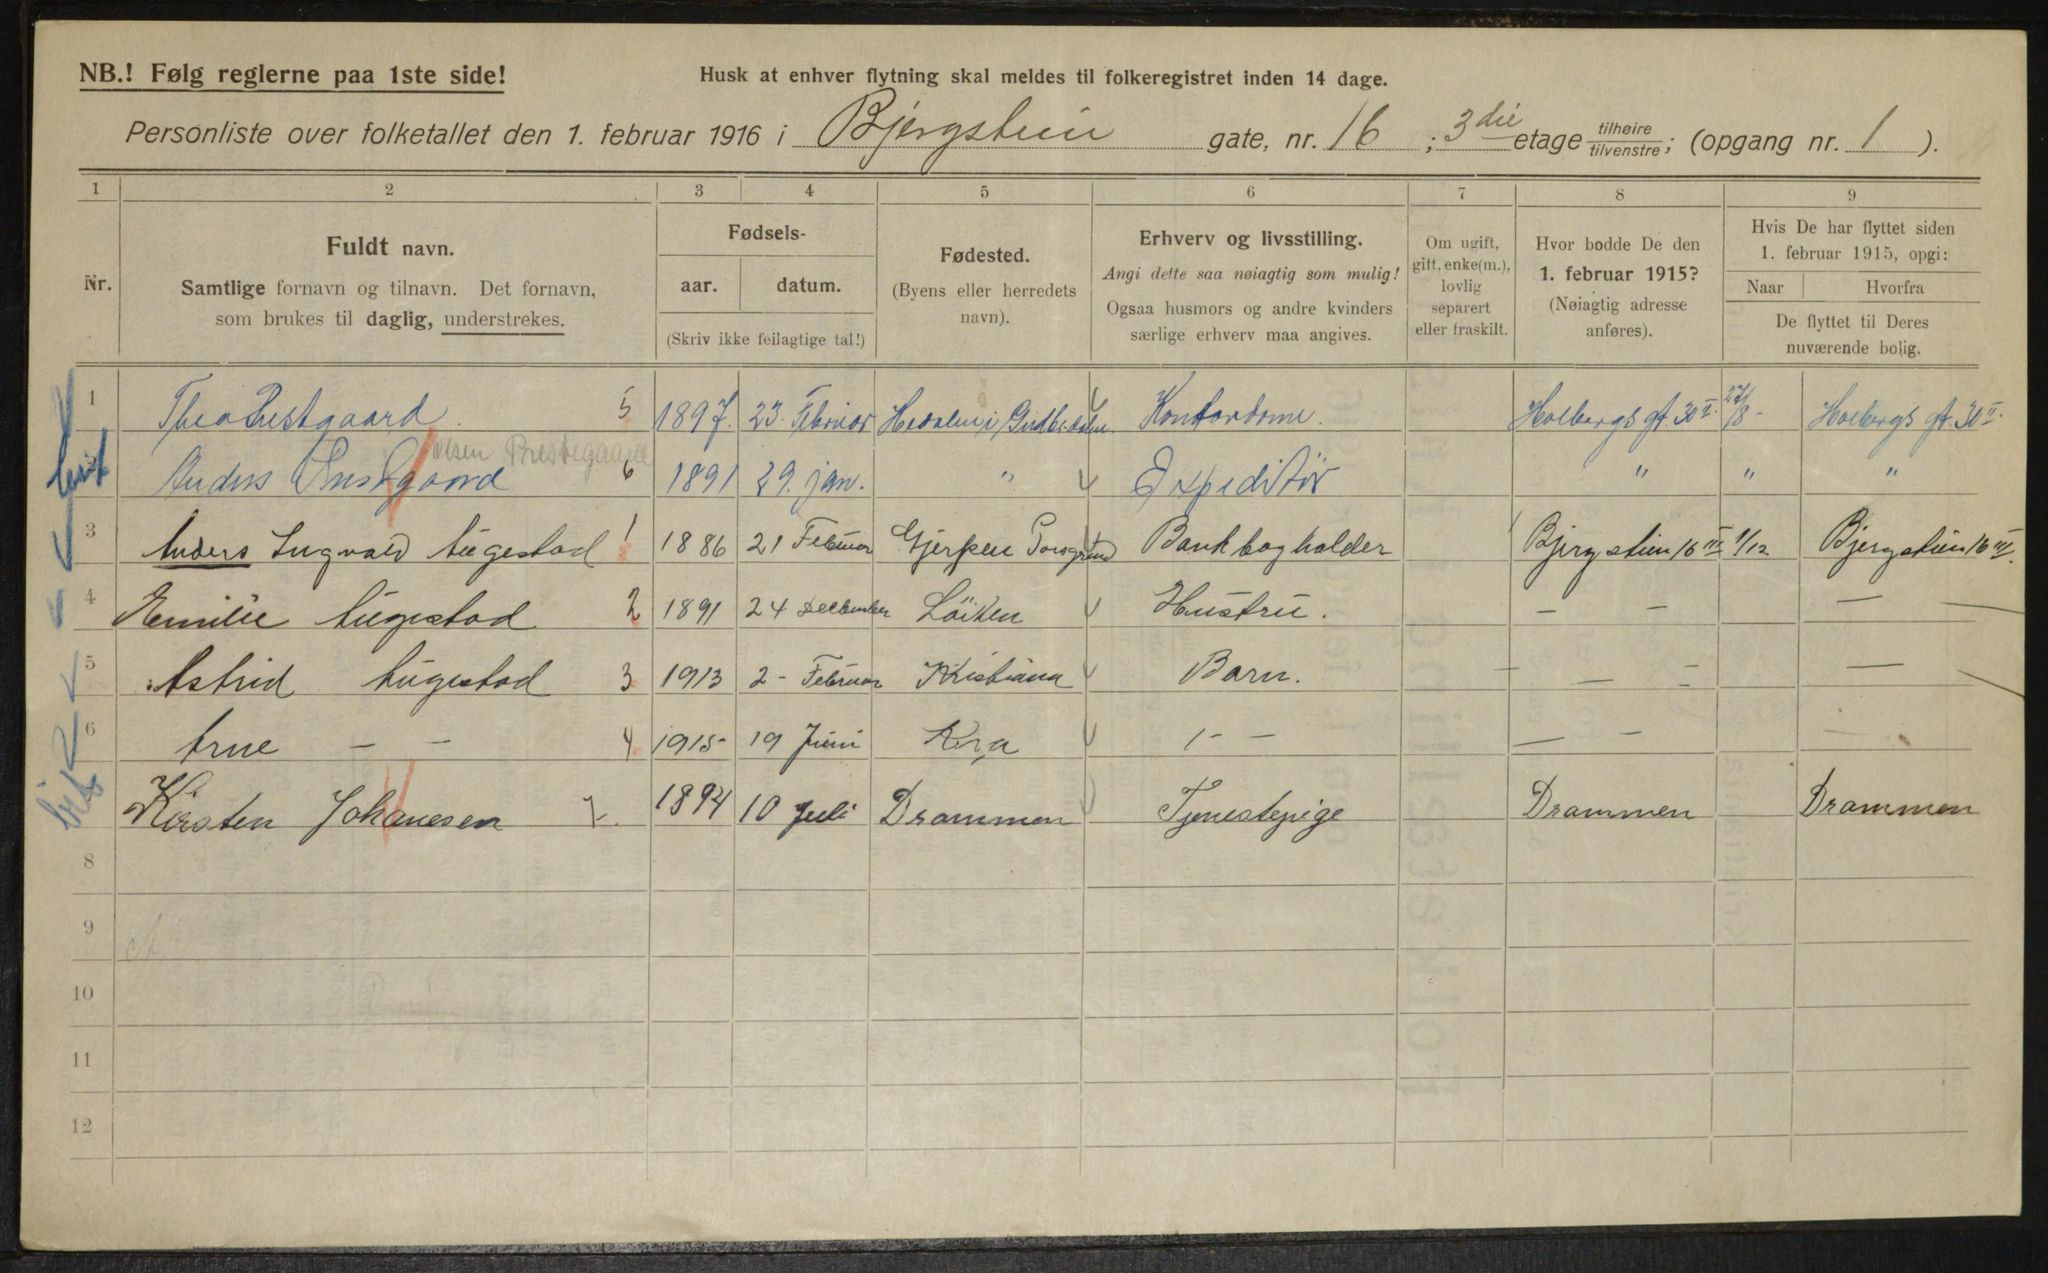 NB.! Følg reglerne paa 1ste side!
Husk at enhver flytning skal meldes til folkeregistret inden 14 dage.
Personliste over folketallet den 1. februar 1916 i Bjergstien gate, nr. 16 ; 3die etage tilhøire tilvenstre ; (opgang nr. 1 ).
1 2 3 4 5 6 7 8 9
Nr.
Fuldt navn.
Samtlige fornavn og tilnavn. Det fornavn,
som brukes til daglig, understrekes.
Fødsels-
aar. datum.
(Skriv ikke feilagtige tal!)
Fødested.
(Byens eller herredets
navn).
Erhverv og livsstilling.
Angi dette saa nøiagtig som mulig!
Ogsaa husmors og andre kvinders
særlige erhverv maa angives.
Om ugift,
gift, enke(m.),
lovlig
separert
eller fraskilt.
Hvor bodde De den
1. februar 1915?
(Nøiagtig adresse
anføres).
Hvis De har flyttet siden
1. februar 1915, opgi:
Naar Hvorfra
De flyttet til Deres
nuværende bolig.
1 Thea Prestgaard. 5 1897. 23. Februar Hedalen i Gudbr.dalen. Kontordame. Holbergs gt. 30 II. 27/8 - Holbergs gt. 30 II.
Olsen Prestegaard
Anders Prestgaard 6 1891 29. jan. " Expeditör " " "
3 Anders Ingvald Augestad 1 1886 21 Februar Gjerpen Porsgrund Bankbogholder Bjergstien 16 III 1/12 Bjergstien 16 III.
4 Emilie Augestad 2 1891 24 December Löiten Hustru. — — —
5 Astrid Augestad 3 1913 2 - Februar Kristiana Barn. — — —
6 Arne — — 4 1915 - 19 Juni Kra - - — — —
7 Kirsten Johanesen 7. 1894 10 Juli Drammen Tjenestepige Drammen Drammen
8
9
10
11
12